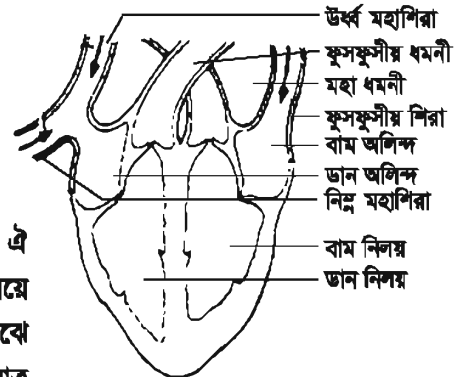 উর্ধ্ব মহাশিরা
ফুসফুসীয় ধমনী
মহা ধমনী
ফুসফুসীয় শিরা
বাম অলিন্দ
ডান অলিন্দ
নিম্ন মহাশিরা
বাম নিলয়
ডান নিলয়
ঐ